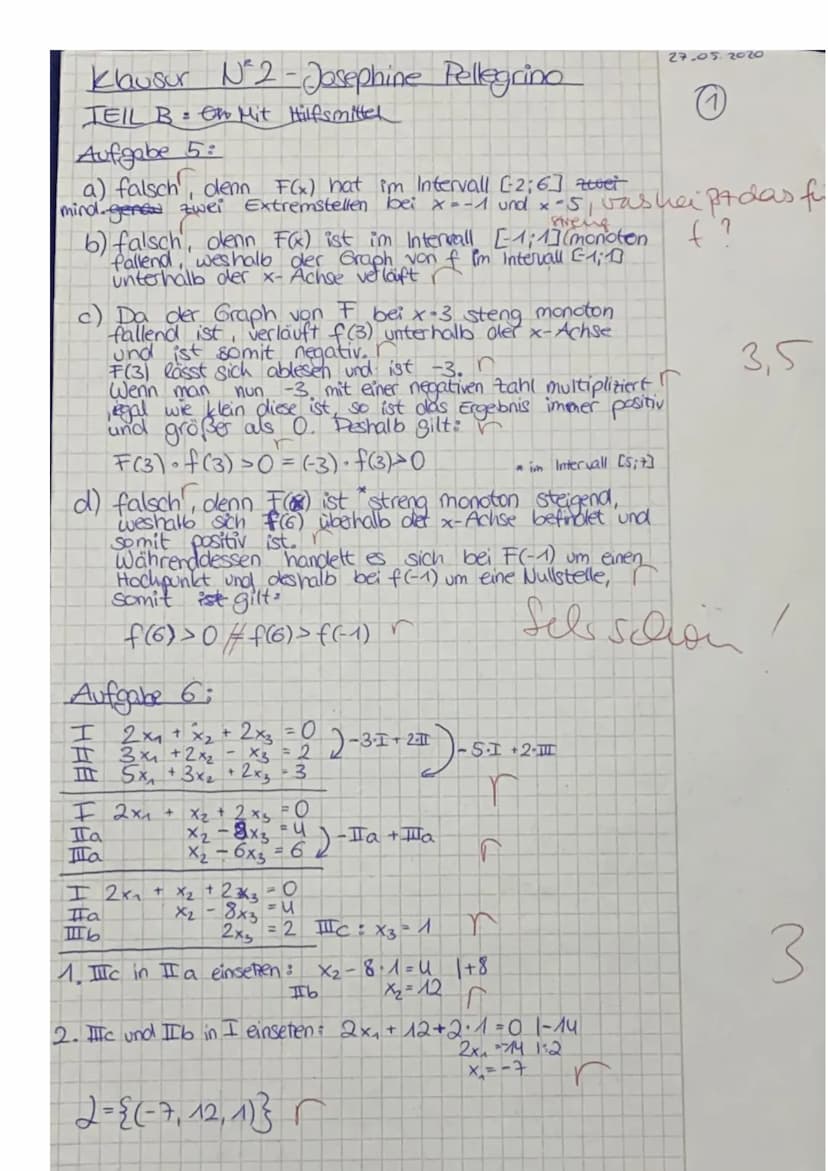 27.05.2020
Klausur N°2 - Josephine Pellegrino
①
TEIL B: Mit Hilfsmittel
Aufgabe 5:
a) falsch r, denn F(x) hat im Intervall [-2;6] zwei
mind. genau zwei Extremstellen bei x=-1 und x=5, was heißt das für
f?
b) falsch r, denn F(x) ist im Intervall [-1;1] streng (monoton
fallend, weshalb der Graph von f im Intervall [-1;1]
unterhalb der x-Achse verläft r
c) Da der Graph von F bei x=3 steng monoton
fallend ist, verläuft f(3) unterhalb der x-Achse
und ist somit negativ. r
3,5
F(3) lässt sich ablesen und ist -3. r
Wenn man nun -3 mit einer negativen zahl multipliziert r
, egal wie klein diese ist, so ist das Ergebnis immer positiv
und größer als 0. Deshalb gilt: r
F(3) · f(3) > 0 = (-3) · f(3) > 0 r
* im Intervall [5;7]
d) falsch r, denn F(x) ist * streng monoton steigend,
weshalb sich f(6) überhalb der x-Achse befindet und
somit positiv ist. r
Währenddessen handelt es sich bei F(-1) um einen
Hochpunkt und deshalb bei f(-1) um eine Nullstelle, r
somit ist gilt:
f(6) > 0 // f(6) > f(-1) r
Sehr schön!
Aufgabe 6:
I 2x₁ + x₂ + 2x₃ = 0 -3·I + 2·II
II 3x₁ + 2x₂ - x₃ = 2 -5·I + 2·III
III 5x₁ + 3x₂ + 2x₃ = 3
r
I 2x₁ + x₂ + 2x₃ = 0
IIa x₂ - 8x₃ = 4 -IIa + IIIa
IIIa x₂ - 6x₃ = 6 r
I 2x₁ + x₂ + 2x₃ = 0
IIa x₂ - 8x₃ = 4
IIIb 2x₃ = 2 IIIc: x₃ = 1 r
3
1. IIIc in IIa einsetzen: x₂ - 8·1 = 4 |+8
IIb x₂ = 12 r
2. IIIc und IIb in I einsetzen: 2x₁ + 12 + 2·1 = 0 |-14
2x₁ = -14 |:2
x₁ = -7 r
L = {(-7, 12, 1)} r